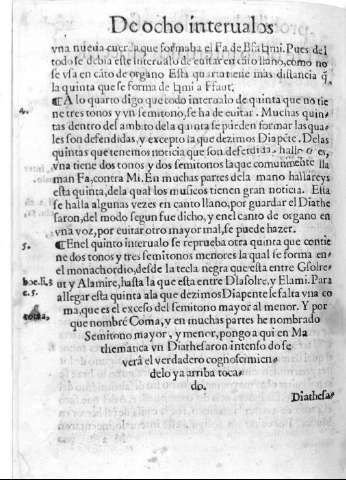 De ocho interualos
vna nueua cuerda que formaba el Fa de Bfabmi. Pues del
todo se debia este interualo de euitar en cāto llano, como no
se vsa en cāto de organo Esta quarta tiene mas distancia q̄
la quinta que se forma de bmi a Ffaut.
4. ¶A lo quarto digo que todo interualo de quinta que no tie
ne tres tonos y vn semitono, se ha de euitar. Muchas quin-
tas dentro del ambito dela quinta se pueden formar las qua-
les son defendidas, y excepto la que dezimos Diapēte. Delas
quintas que tenemos noticia que son defendidas hallo
vna tiene dos tonos y dos semitonos la que comunmente lla
man Fa, contra Mi. En muchas partes dela mano hallareys
esta quinta, dela qual los musicos tienen gran noticia. Esta
se halla algunas vezes en canto llano, por guardar el Diathe
saron, del modo segun fue dicho, y en el canto de organo en
vna voz, por euitar otro mayor mal, se puede hazer.
5. ¶En el quinto interualo se reprueba otra quinta que contie
ne dos tonos y tres semitonos menores la qual se forma en
el monachordio, desde la tecla negra que esta entre Gsolre-
boe. li. 3 ut y Alamire, hasta la que esta entre Dlasolre, y Elami. Para
c. 5. allegar esta quinta ala que dezimos Diapente le falta vna co
ma, que es el excesso del semitono mayor al menor. Y por
que nombré Coma, y en muchas partes he nombrado
Semitono mayor, y menor, pongo aqui en Ma
thematica vn Diathesaron intenso do se
verá el verdadero cognoscimien-
delo ya arriba toca-
do.
Diathesa-